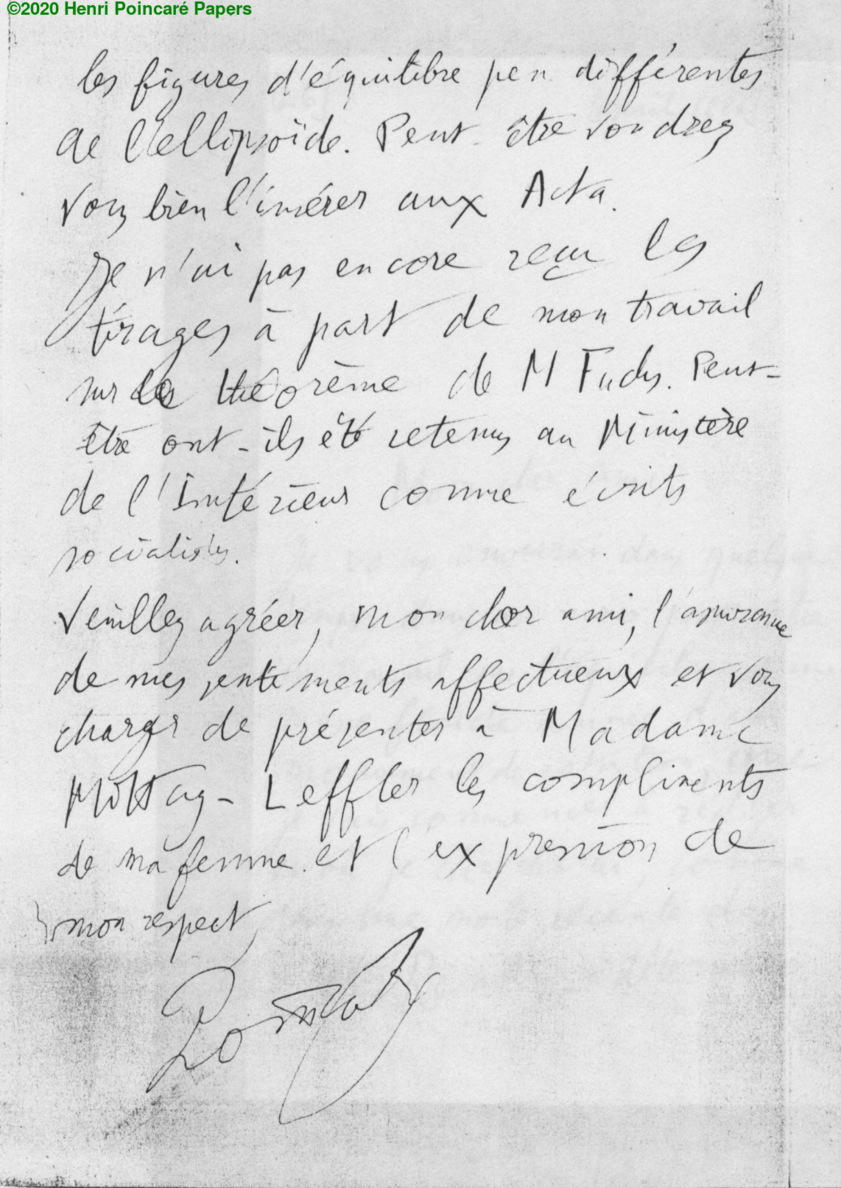 ©2020 Henri Poincaré Papers
les figures d'équilibre peu différentes
de l'ellipsoïde. Peut-être voudrez
vous bien l'insérer aux Acta.
Je n'ai pas encore reçu les
tirages à part de mon travail
sur les théorème de M Fuchs. Peut-
être ont-ils été retenus au Ministère
de l'Intérieur comme écrits
socialistes.
Veuillez agréer, mon cher ami, l'assurance
de mes sentiments affectueux et vous
charger de présenter à Madame
Mittag-Leffler les compliments
de ma femme et l'expression de
mon respect,
Poincaré